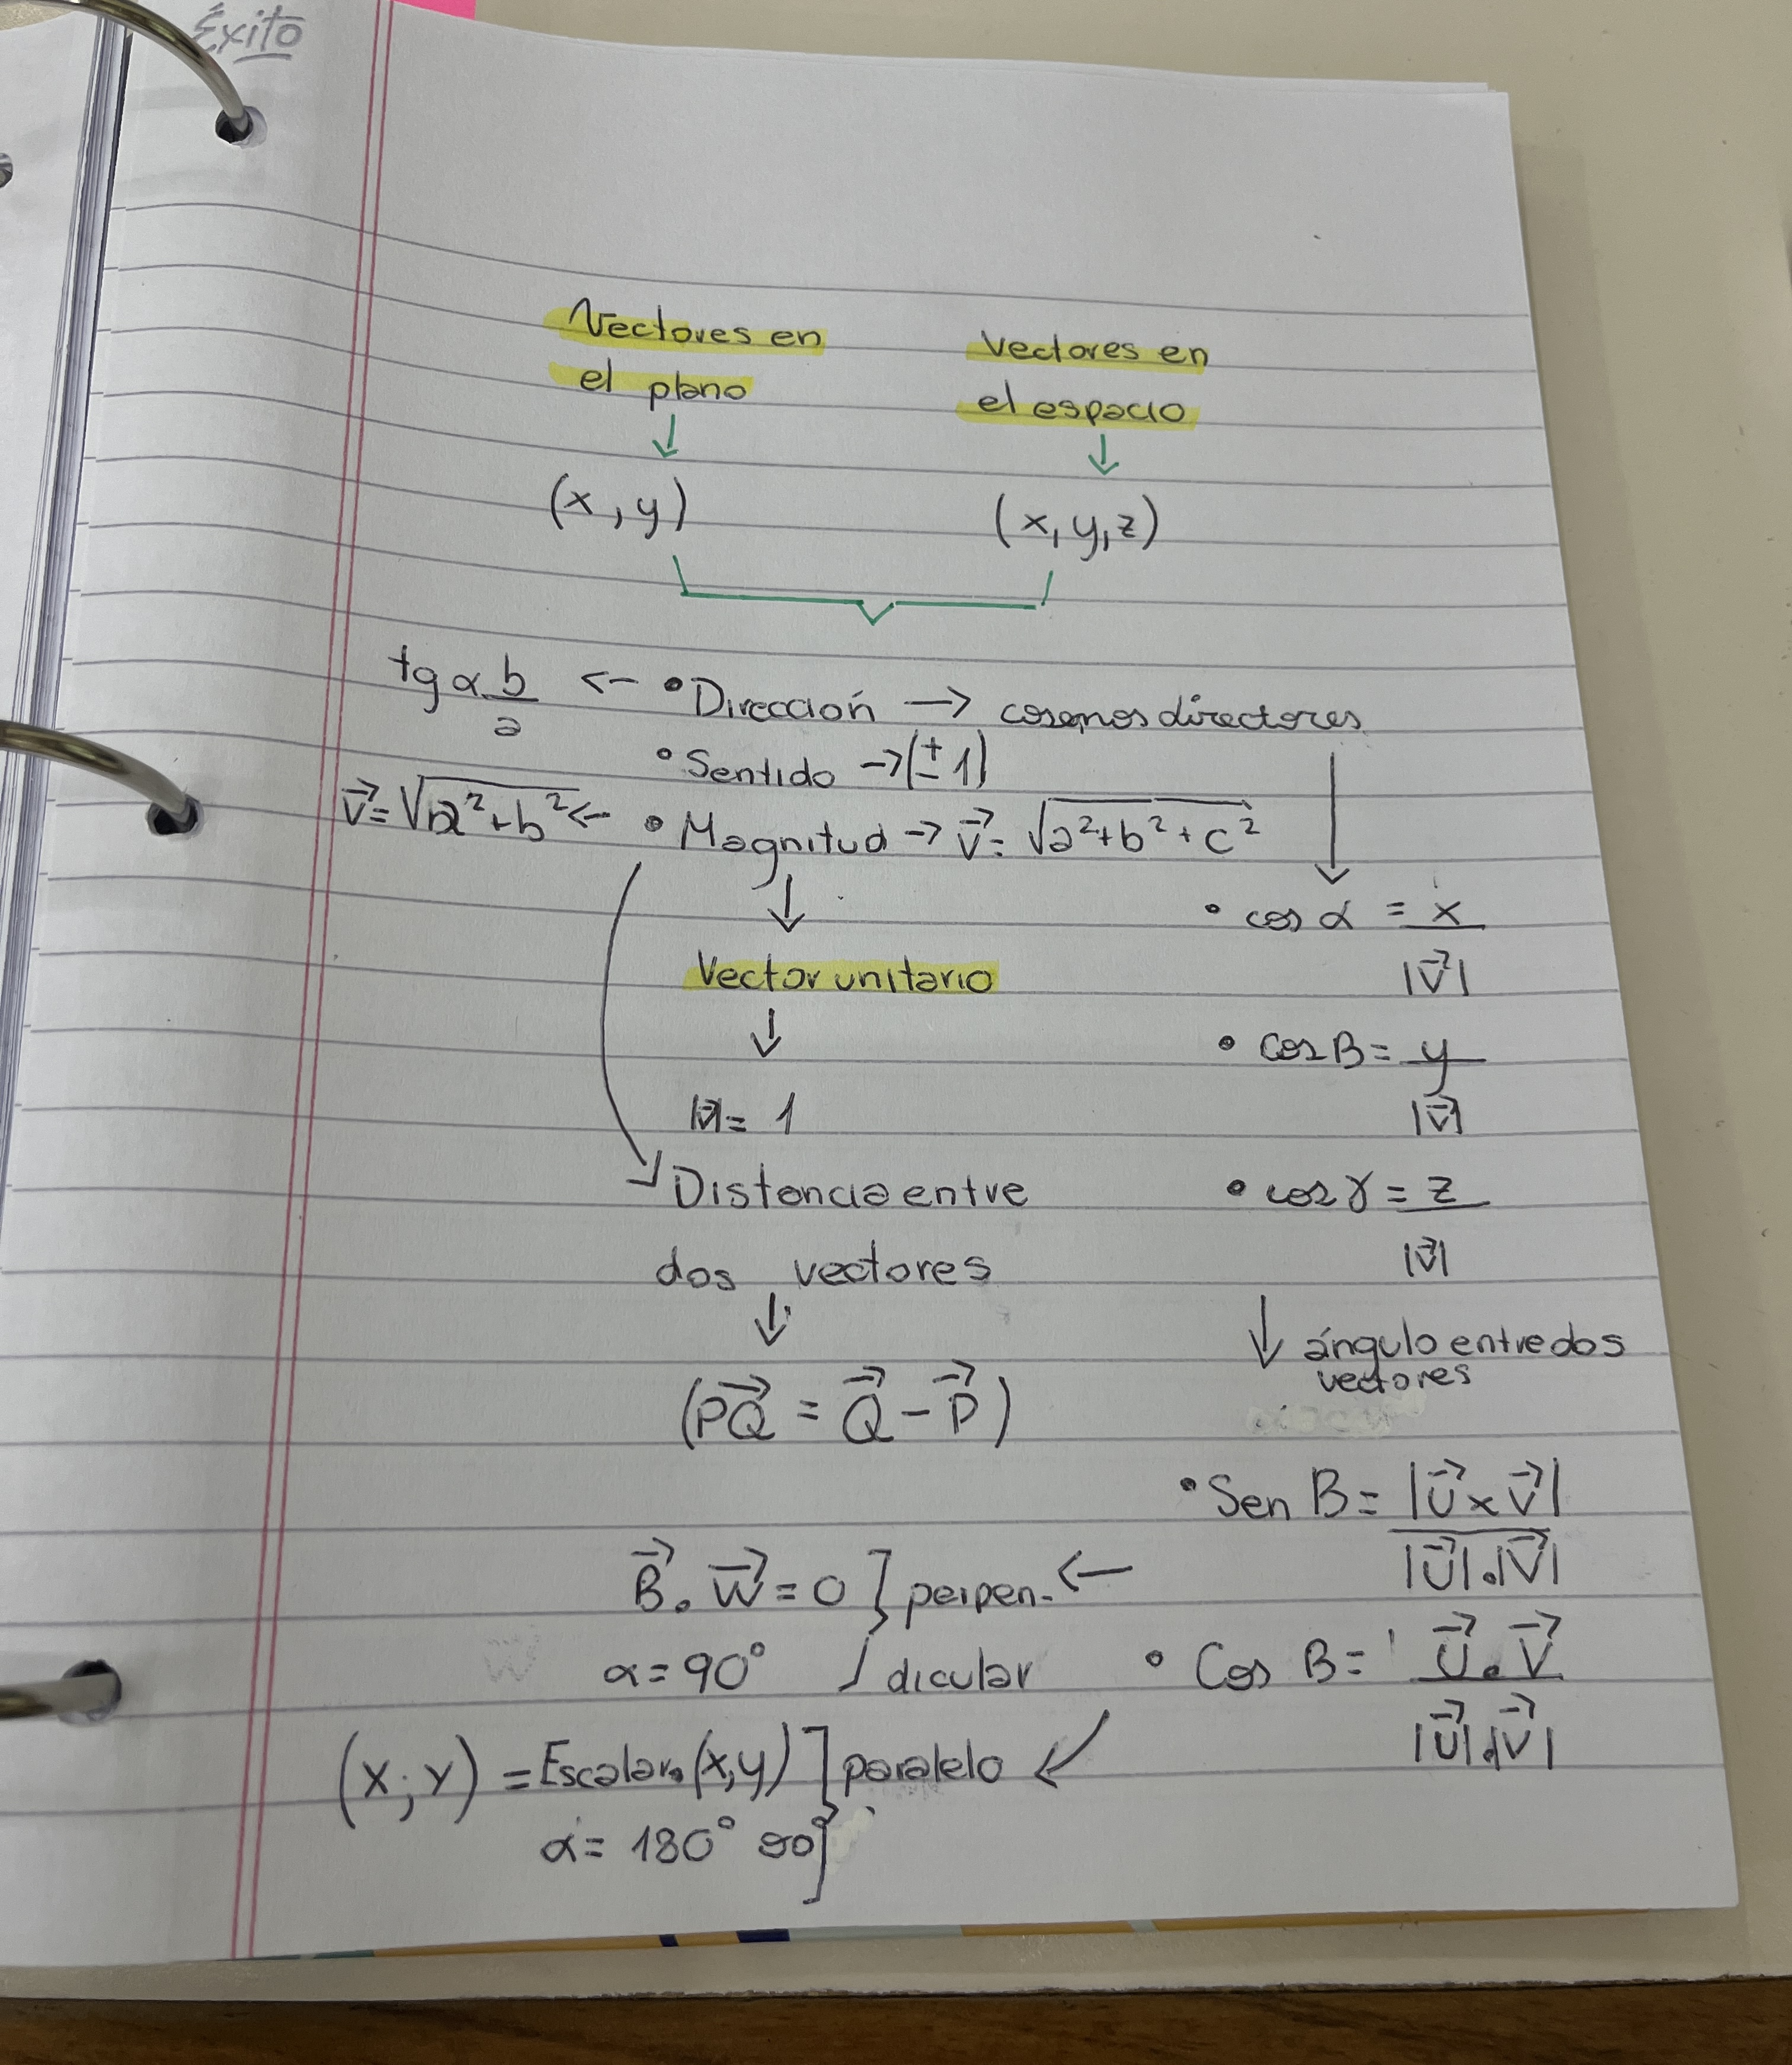 Éxito
Vectores en
el plano
vectores en
el espacio
↓
↓
(x, y)
(x, y, z)
tg α b/a ← • Dirección → cosenos directores
• Sentido → (± 1)
v⃗ = √a²+b² ← • Magnitud → v⃗ = √a²+b²+c²
↓
• cos α = x/|v⃗|
Vector unitario
↓
• cos B = y/|v⃗|
|v⃗| = 1
Distancia entre
dos vectores
• cos γ = z/|v⃗|
↓
↓ ángulo entre dos
vectores
(PQ⃗ = Q⃗ - P⃗)
• Sen B = |U⃗ x V⃗|/|U⃗|.|V⃗|
B⃗ . W⃗ = 0 } perpen- ←
α = 90° dicular
• Cos B = U⃗ . V⃗/|U⃗|.|V⃗|
(x; y) = Escalar.(x,y) ] paralelo ↙
α = 180°